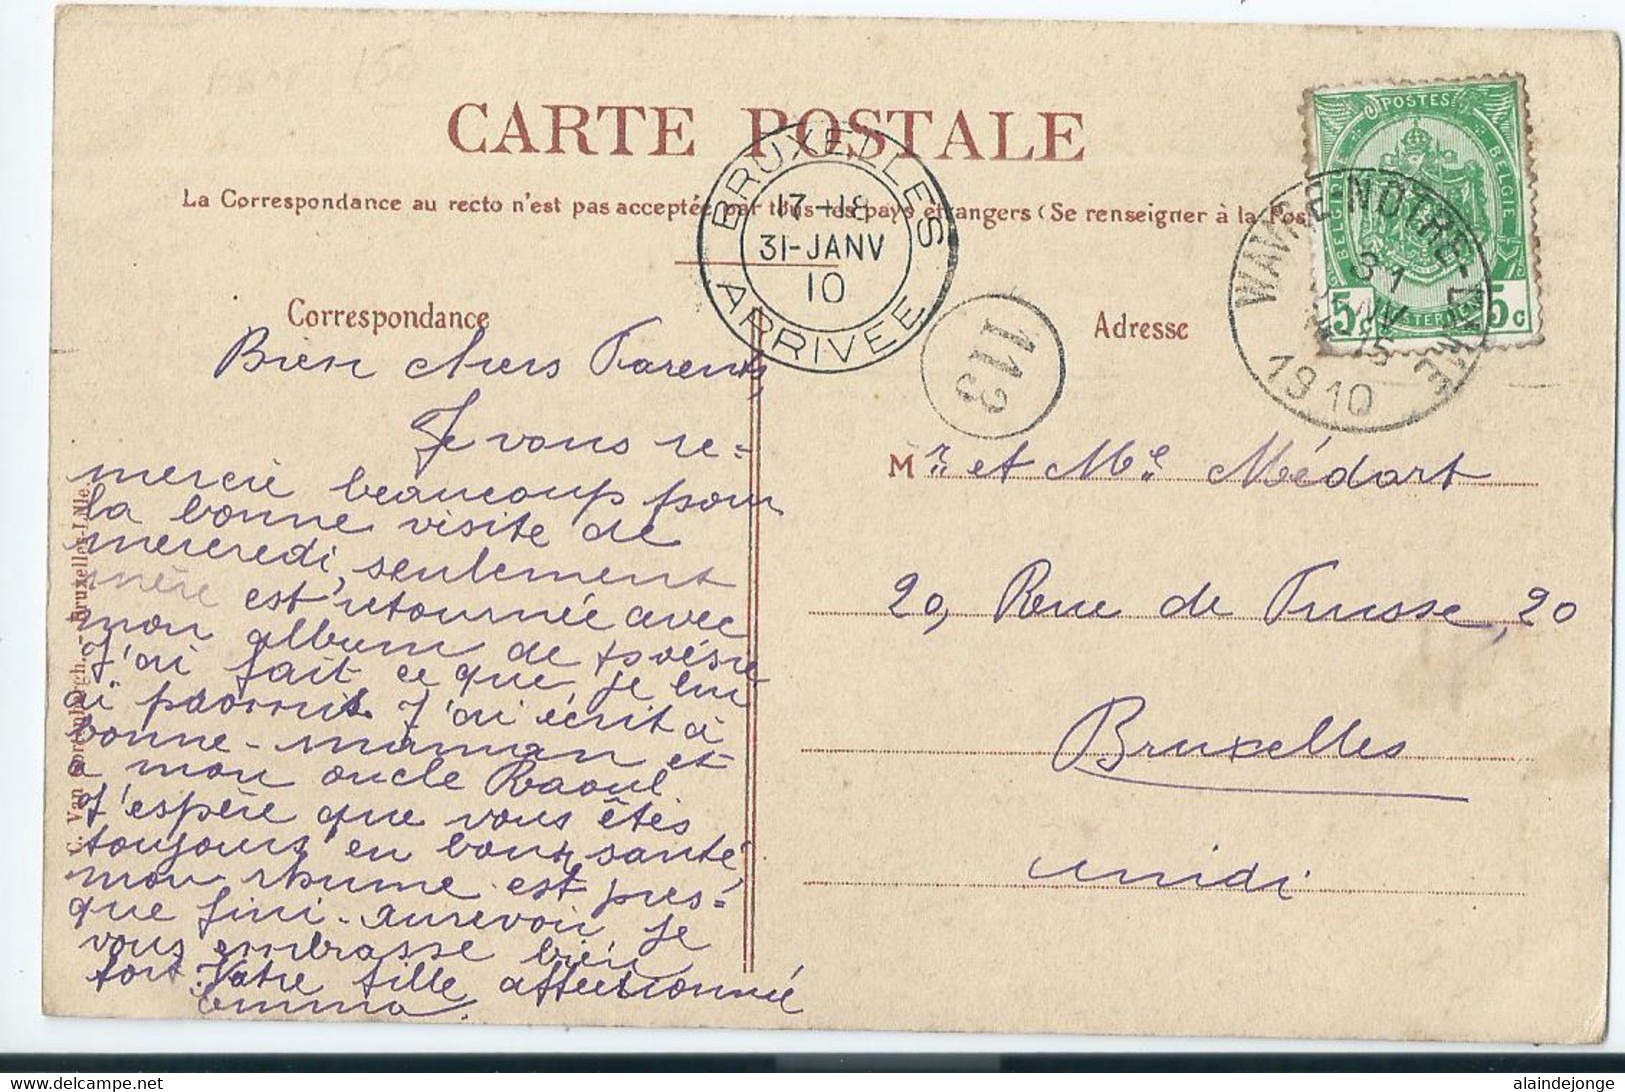 CARTE POSTALE
La Correspondance au recto n'est pas acceptée par tous les pays étrangers (Se renseigner à la Pos
BRUXELLES
17-18
31-JANV
10
ARRIVEE
POSTES
BELGIQUE
BELGIE
5c 5c
WAVRE-NOTRE-DAME
31
15
1910
113
Correspondance
Adresse
Bien chers Parents,
Je vous re-
mercie beaucoup pour
la bonne visite de
mercredi, seulement
mère est retournée avec
mon album de poésie
J'ai fait ce que je lui
ai promis. J'ai écrit à
bonne-maman et
à mon oncle Raoul
J'espère que vous êtes
toujours en bonne santé,
mon rhume est pres-
que fini. aurevoir je
vous embrasse bien
fort. Votre fille affectionnée
Emma.
Mr. et Me. Médart
20, Rue de Prusse, 20
Bruxelles
midi
C. Van Cortenbergh. - Bruxelles-J.Nle.
alaindejonge